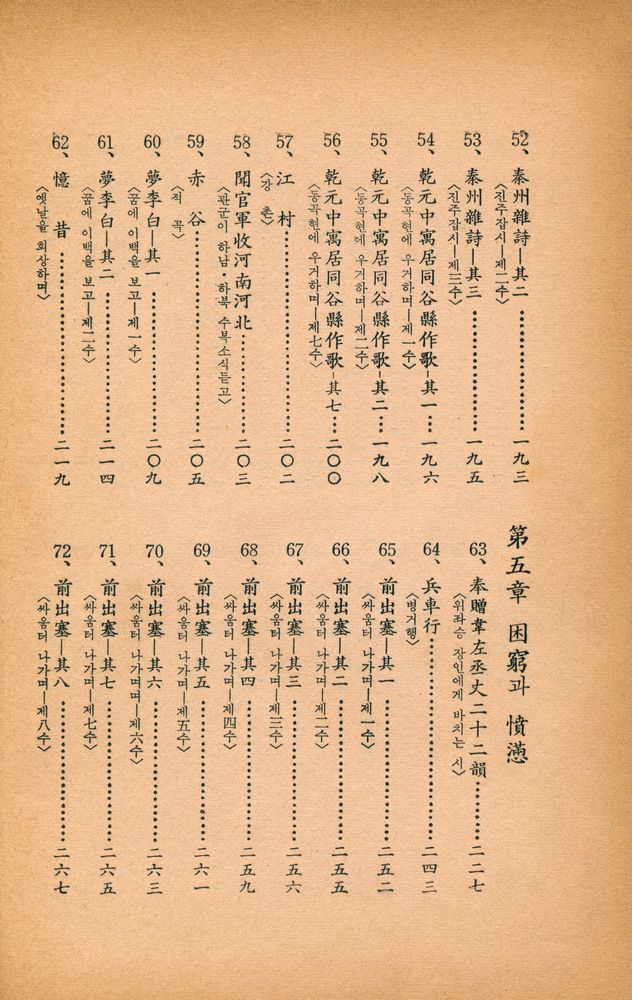 52、秦州雜詩—其二……………………一九三
〈진주잡시—제二수〉
53、秦州雜詩—其三……………………一九五
〈진주잡시—제三수〉
54、乾元中寓居同谷縣作歌-其一…一九六
〈동곡현에 우거하며—제一수〉
55、乾元中寓居同谷縣作歌-其二…一九八
〈동곡현에 우거하며—제二수〉
56、乾元中寓居同谷縣作歌-其七…二〇〇
〈동곡현에 우거하며—제七수〉
57、江村……………………二〇二
〈강촌〉
58、聞官軍收河南河北……………二〇三
〈관군이 하남·하북 수복소식듣고〉
59、赤谷……………………二〇五
〈적곡〉
60、夢李白—其一……………………二〇九
〈꿈에 이백을 보고—제一수〉
61、夢李白—其二……………………二一四
〈꿈에 이백을 보고—제二수〉
62、憶昔……………………二一九
〈옛날을 회상하며〉
第五章 困窮과 憤懣
63、奉贈韋左丞丈二十二韻…………二二七
〈위좌승 장인에게 바치는 시〉
64、兵車行……………………二四三
〈병거행〉
65、前出塞—其一……………………二五二
〈싸움터 나가며—제一수〉
66、前出塞—其二……………………二五五
〈싸움터 나가며—제二수〉
67、前出塞—其三……………………二五六
〈싸움터 나가며—제三수〉
68、前出塞—其四……………………二五九
〈싸움터 나가며—제四수〉
69、前出塞—其五……………………二六一
〈싸움터 나가며—제五수〉
70、前出塞—其六……………………二六三
〈싸움터 나가며며—제六수〉
71、前出塞—其七……………………二六五
〈싸움터 나가며—제七수〉
72、前出塞—其八……………………二六七
〈싸움터 나가며—제八수〉